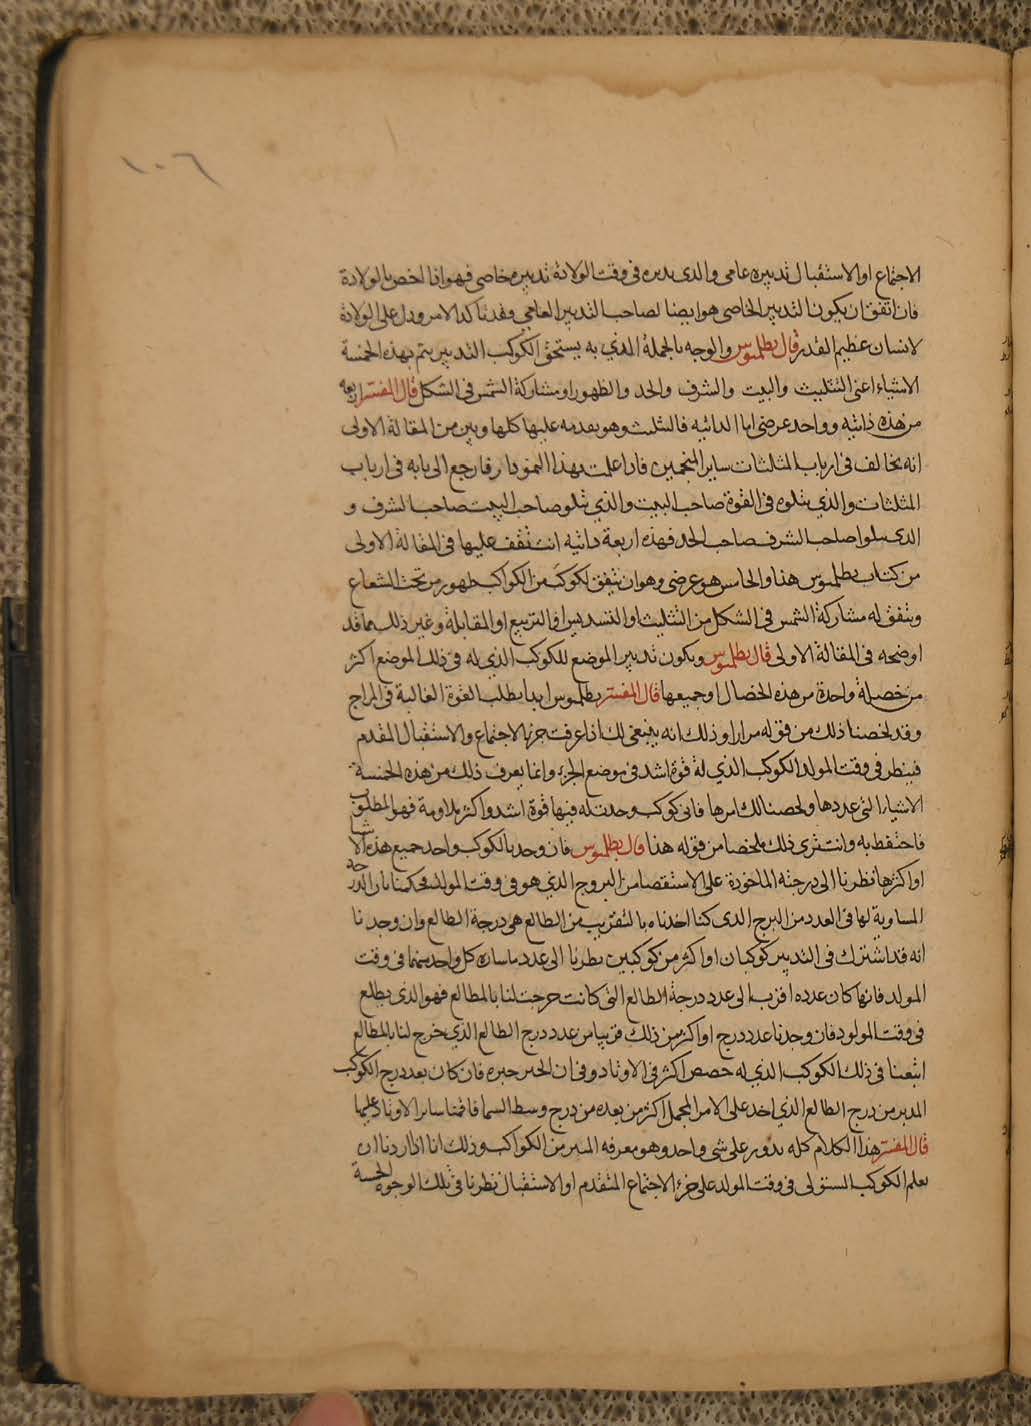 ١٠٦
الاجتماع او الاستقبال تدبيره عامى والذى يدبره فى وقت الولادة تدبيره خاصى فهو اذا اخص بالولادة
فان اتفق ان يكون التدبير الخاصى هو ايضا لصاحب التدبير العامي وقد تأكد الامر ودل على الولادة
لانسان عظيم القدر قال بطلميوس والوجه بالجملة الذي به يستحق الكوكب التدبير يتم بهذه الخمسة
الاشياء اعنى التثليث والبيت والشرف والحد والظهور او مشاركة الشمس فى الشكل قال المفسر اربعة
من هذه ذاتيه وواحد عرضى اما الذاتيه فالتثليث وهو يقدمه عليها كلها وبين من المقالة الاولى
انه يخالف فى ارباب المثلثات ساير المنجمين فاذا علمت بهذا النمودار فارجع الى بابه فى ارباب
المثلثات والذي يتلوه فى القوة صاحب البيت والذي يتلو صاحب البيت صاحب الشرف و
الذى يتلوا صاحب الشرف صاحب الحد فهذه اربعة ذاتيه انت تقف عليها فى المقالة الاولى
من كتاب بطلميوس هذا والخامس هو عرضى وهو ان يتفق لكوكب من الكواكب ظهور من تحت الشعاع
ويتفق له مشاركة الشمس فى الشكل من التثليث او التسديس او التربيع او المقابلة وغير ذلك مما قد
اوضحه فى المقالة الاولى قال بطلميوس ويكون تدبير الموضع للكوكب الذي له فى ذلك الموضع اكثر
من خصلة واحدة من هذه الخصال او جميعها قال المفسر بطلميوس ابدا يطلب القوة الغالبة فى المزاج
وقد لخصنا ذلك من قوله مرارا وذلك انه ينبغى لك اذا عرفت جزء الاجتماع والاستقبال المتقدم
فينظر فى وقت المولد الكوكب الذي له قوة اشد فى موضع الجزء وانما يعرف ذلك من هذه الخمسة
الاشياء التى عددها ولخصنا لك امرها فاى كوكب وجدت له فيها قوة اشد واكثر ملاومة فهو المطلوب
فاحتفظ به وانت ترى ذلك ملخصا من قوله هذا قال بطلميوس فان وجد بالكوكب واحد جميع هذه الاشيا
او اكثرها نظرنا الى درجته الماخوذة على الاستقصا من البروج الذي هو فى وقت المولد فحكمنا بان الدرجه
المساوية لها فى العدد من البرج الذى كنا اخذناه بالتقريب من الطالع هى درجة الطالع وان وجدنا
انه قد اشترك فى التدبير كوكبان او اكثر من كوكبين نظرنا الى عدد ما ساره كل واحد منهما فى وقت
المولد فانها كان عدده اقرب الى عدد درجة الطالع التى كانت خرجت لنا بالمطالع فهو الذى يطلع
فى وقت المولود فان وجدنا عدد درج او اكثر من ذلك قريبا من عدد درج الطالع الذي خرج لنا بالمطالع
اتبعنا فى ذلك الكوكب الذي له حصص اكثر فى الاوتاد وفى ان الخير حيره فان كان بعد درج الكوكب
المدبر من درج الطالع الذي اخذ على الامر المجمل اكثر من بعده من درج وسط السما فاقمنا ساير الاوتاد عليها
قال المفسر هذا الكلام كله يدور على شى واحد وهو معرفه المدبر من الكواكب وذلك انا اذا اردنا ان
نعلم الكوكب المستولى فى وقت المولد على جزء الاجتماع المتقدم او الاستقبال نظرنا فى تلك الوجوه الخمسة